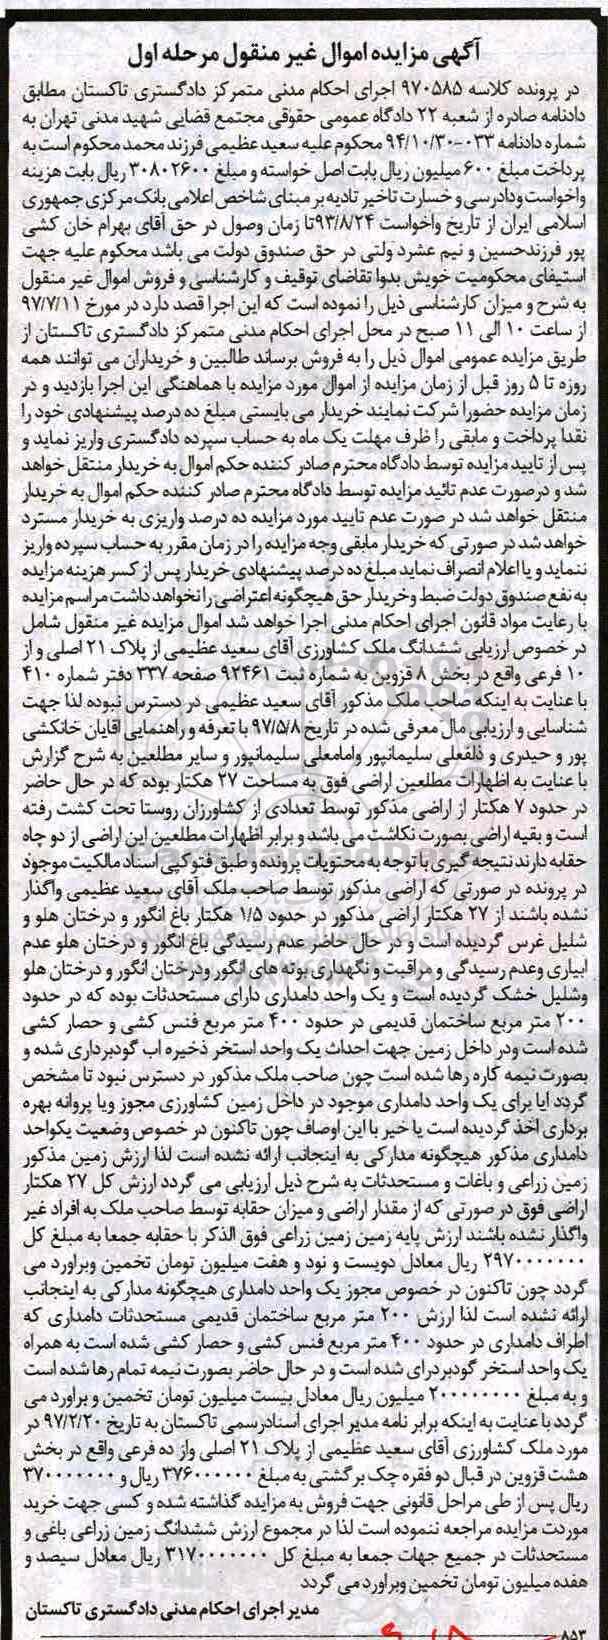 آگهی مزایده اموال غیر منقول مرحله اول
در پرونده کلاسه ۹۷۰۵۸۵ اجرای احکام مدنی متمرکز دادگستری تاکستان مطابق
دادنامه صادره از شعبه ۲۲ دادگاه عمومی حقوقی مجتمع قضایی شهید مدنی تهران به
شماره دادنامه ۰۳۳-۹۴/۱۰/۳۰ محکوم علیه سعید عظیمی فرزند محمد محکوم است به
پرداخت مبلغ ۶۰۰ میلیون ریال بابت اصل خواسته و مبلغ ۳۰۸۰۲۶۰۰ ریال بابت هزینه
واخواست ودادرسی و خسارت تاخیر تادیه بر مبنای شاخص اعلامی بانک مرکزی جمهوری
اسلامی ایران از تاریخ واخواست ۹۳/۸/۲۴تا زمان وصول در حق آقای بهرام خان کشی
پور فرزندحسین و نیم عشرد ولتی در حق صندوق دولت می باشد محکوم علیه جهت
استیفای محکومیت خویش بدوا تقاضای توقیف و کارشناسی و فروش اموال غیر منقول
به شرح و میزان کارشناسی ذیل را نموده است که این اجرا قصد دارد در مورخ ۹۷/۷/۱۱
از ساعت ۱۰ الی ۱۱ صبح در محل اجرای احکام مدنی متمرکز دادگستری تاکستان از
طریق مزایده عمومی اموال ذیل را به فروش برساند طالبین و خریداران می توانند همه
روزه تا ۵ روز قبل از زمان مزایده از اموال مورد مزایده با هماهنگی این اجرا بازدید و در
زمان مزایده حضورا شرکت نمایند خریدار می بایستی مبلغ ده درصد پیشنهادی خود را
نقدا پرداخت و مابقی را ظرف مهلت یک ماه به حساب سپرده دادگستری واریز نماید و
پس از تایید مزایده توسط دادگاه محترم صادر کننده حکم اموال به خریدار منتقل خواهد
شد و درصورت عدم تائید مزایده توسط دادگاه محترم صادر کننده حکم اموال به خریدار
منتقل خواهد شد در صورت عدم تایید مورد مزایده ده درصد واریزی به خریدار مسترد
خواهد شد در صورتی که خریدار مابقی وجه مزایده را در زمان مقرر به حساب سپرده واریز
ننماید و یا اعلام انصراف نماید مبلغ ده درصد پیشنهادی خریدار پس از کسر هزینه مزایده
به نفع صندوق دولت ضبط و خریدار حق هیچگونه اعتراضی را نخواهد داشت مراسم مزایده
با رعایت مواد قانون اجرای احکام مدنی اجرا خواهد شد اموال مزایده غیر منقول شامل
در خصوص ارزیابی ششدانگ ملک کشاورزی آقای سعید عظیمی از پلاک ۲۱ اصلی و از
۱۰ فرعی واقع در بخش ۸ قزوین به شماره ثبت ۹۲۴۶۱ صفحه ۳۳۷ دفتر شماره ۴۱۰
با عنایت به اینکه صاحب ملک مذکور آقای سعید عظیمی در دسترس نبوده لذا جهت
شناسایی و ارزیابی مال معرفی شده در تاریخ ۹۷/۵/۸ با تعرفه و راهنمایی اقایان خانکشی
پور و حیدری و ذلفعلی سلیمانپور وامامعلی سلیمانپور و سایر مطلعین به شرح گزارش
با عنایت به اظهارات مطلعین اراضی فوق به مساحت ۲۷ هکتار بوده که در حال حاضر
در حدود ۷ هکتار از اراضی مذکور توسط تعدادی از کشاورزان روستا تحت کشت رفته
است و بقیه اراضی بصورت نکاشت می باشد و برابر اظهارات مطلعین این اراضی از دو چاه
حقابه دارند نتیجه گیری با توجه به محتویات پرونده و طبق فتوکپی اسناد مالکیت موجود
در پرونده در صورتی که اراضی مذکور توسط صاحب ملک آقای سعید عظیمی واگذار
نشده باشند از ۲۷ هکتار اراضی مذکور در حدود ۱/۵ هکتار باغ انگور و درختان هلو و
شلیل غرس گردیده است و در حال حاضر عدم رسیدگی باغ انگور و درختان هلو عدم
ابیاری وعدم رسیدگی و مراقبت و نگهداری بوته های انگور ودرختان انگور و درختان هلو
وشلیل خشک گردیده است و یک واحد دامداری دارای مستحدثات بوده که در حدود
۲۰۰ متر مربع ساختمان قدیمی در حدود ۴۰۰ متر مربع فنس کشی و حصار کشی
شده است ودر داخل زمین جهت احداث یک واحد استخر ذخیره اب گودبرداری شده و
بصورت نیمه کاره رها شده است چون صاحب ملک مذکور در دسترس نبود تا مشخص
گردد ایا برای یک واحد دامداری موجود در داخل زمین کشاورزی مجوز ویا پروانه بهره
برداری اخذ گردیده است یا خیر با این اوصاف چون تاکنون در خصوص وضعیت یکواحد
دامداری مذکور هیچگونه مدارکی به اینجانب ارائه نشده است لذا ارزش زمین مذکور
زمین زراعی و باغات و مستحدثات به شرح ذیل ارزیابی می گردد ارزش کل ۲۷ هکتار
اراضی فوق در صورتی که از مقدار اراضی و میزان حقابه توسط صاحب ملک به افراد غیر
واگذار نشده باشند ارزش پایه زمین زمین زراعی فوق الذکر با حقابه جمعا به مبلغ کل
۲۹۷۰۰۰۰۰۰۰ ریال معادل دویست و نود و هفت میلیون تومان تخمین وبراورد می
گردد چون تاکنون در خصوص مجوز یک واحد دامداری هیچگونه مدارکی به اینجانب
ارائه نشده است لذا ارزش ۲۰۰ متر مربع ساختمان قدیمی مستحدثات دامداری که
اطراف دامداری در حدود ۴۰۰ متر مربع فنس کشی و حصار کشی شده است به همراه
یک واحد استخر گودبردرای شده است و در حال حاضر بصورت نیمه تمام رها شده است
و به مبلغ ۲۰۰۰۰۰۰۰۰ میلیون ریال معادل بیست میلیون تومان تخمین و براورد می
گردد با عنایت به اینکه برابر نامه مدیر اجرای اسنادرسمی تاکستان به تاریخ ۹۷/۲/۲۰ در
مورد ملک کشاورزی آقای سعید عظیمی از پلاک ۲۱ اصلی واز ده فرعی واقع در بخش
هشت قزوین در قبال دو فقره چک برگشتی به مبلغ ۳۷۶۰۰۰۰۰۰ ریال و ۳۷۰۰۰۰۰۰۰
ریال پس از طی مراحل قانونی جهت فروش به مزایده گذاشته شده و کسی جهت خرید
موردت مزایده مراجعه ننموده است لذا در مجموع ارزش ششدانگ زمین زراعی باغی و
مستحدثات در جمیع جهات جمعا به مبلغ کل ۳۱۷۰۰۰۰۰۰۰ ریال معادل سیصد و
هفده میلیون تومان تخمین وبراورد می گردد
مدیر اجرای احکام مدنی دادگستری تاکستان
۸۵۳